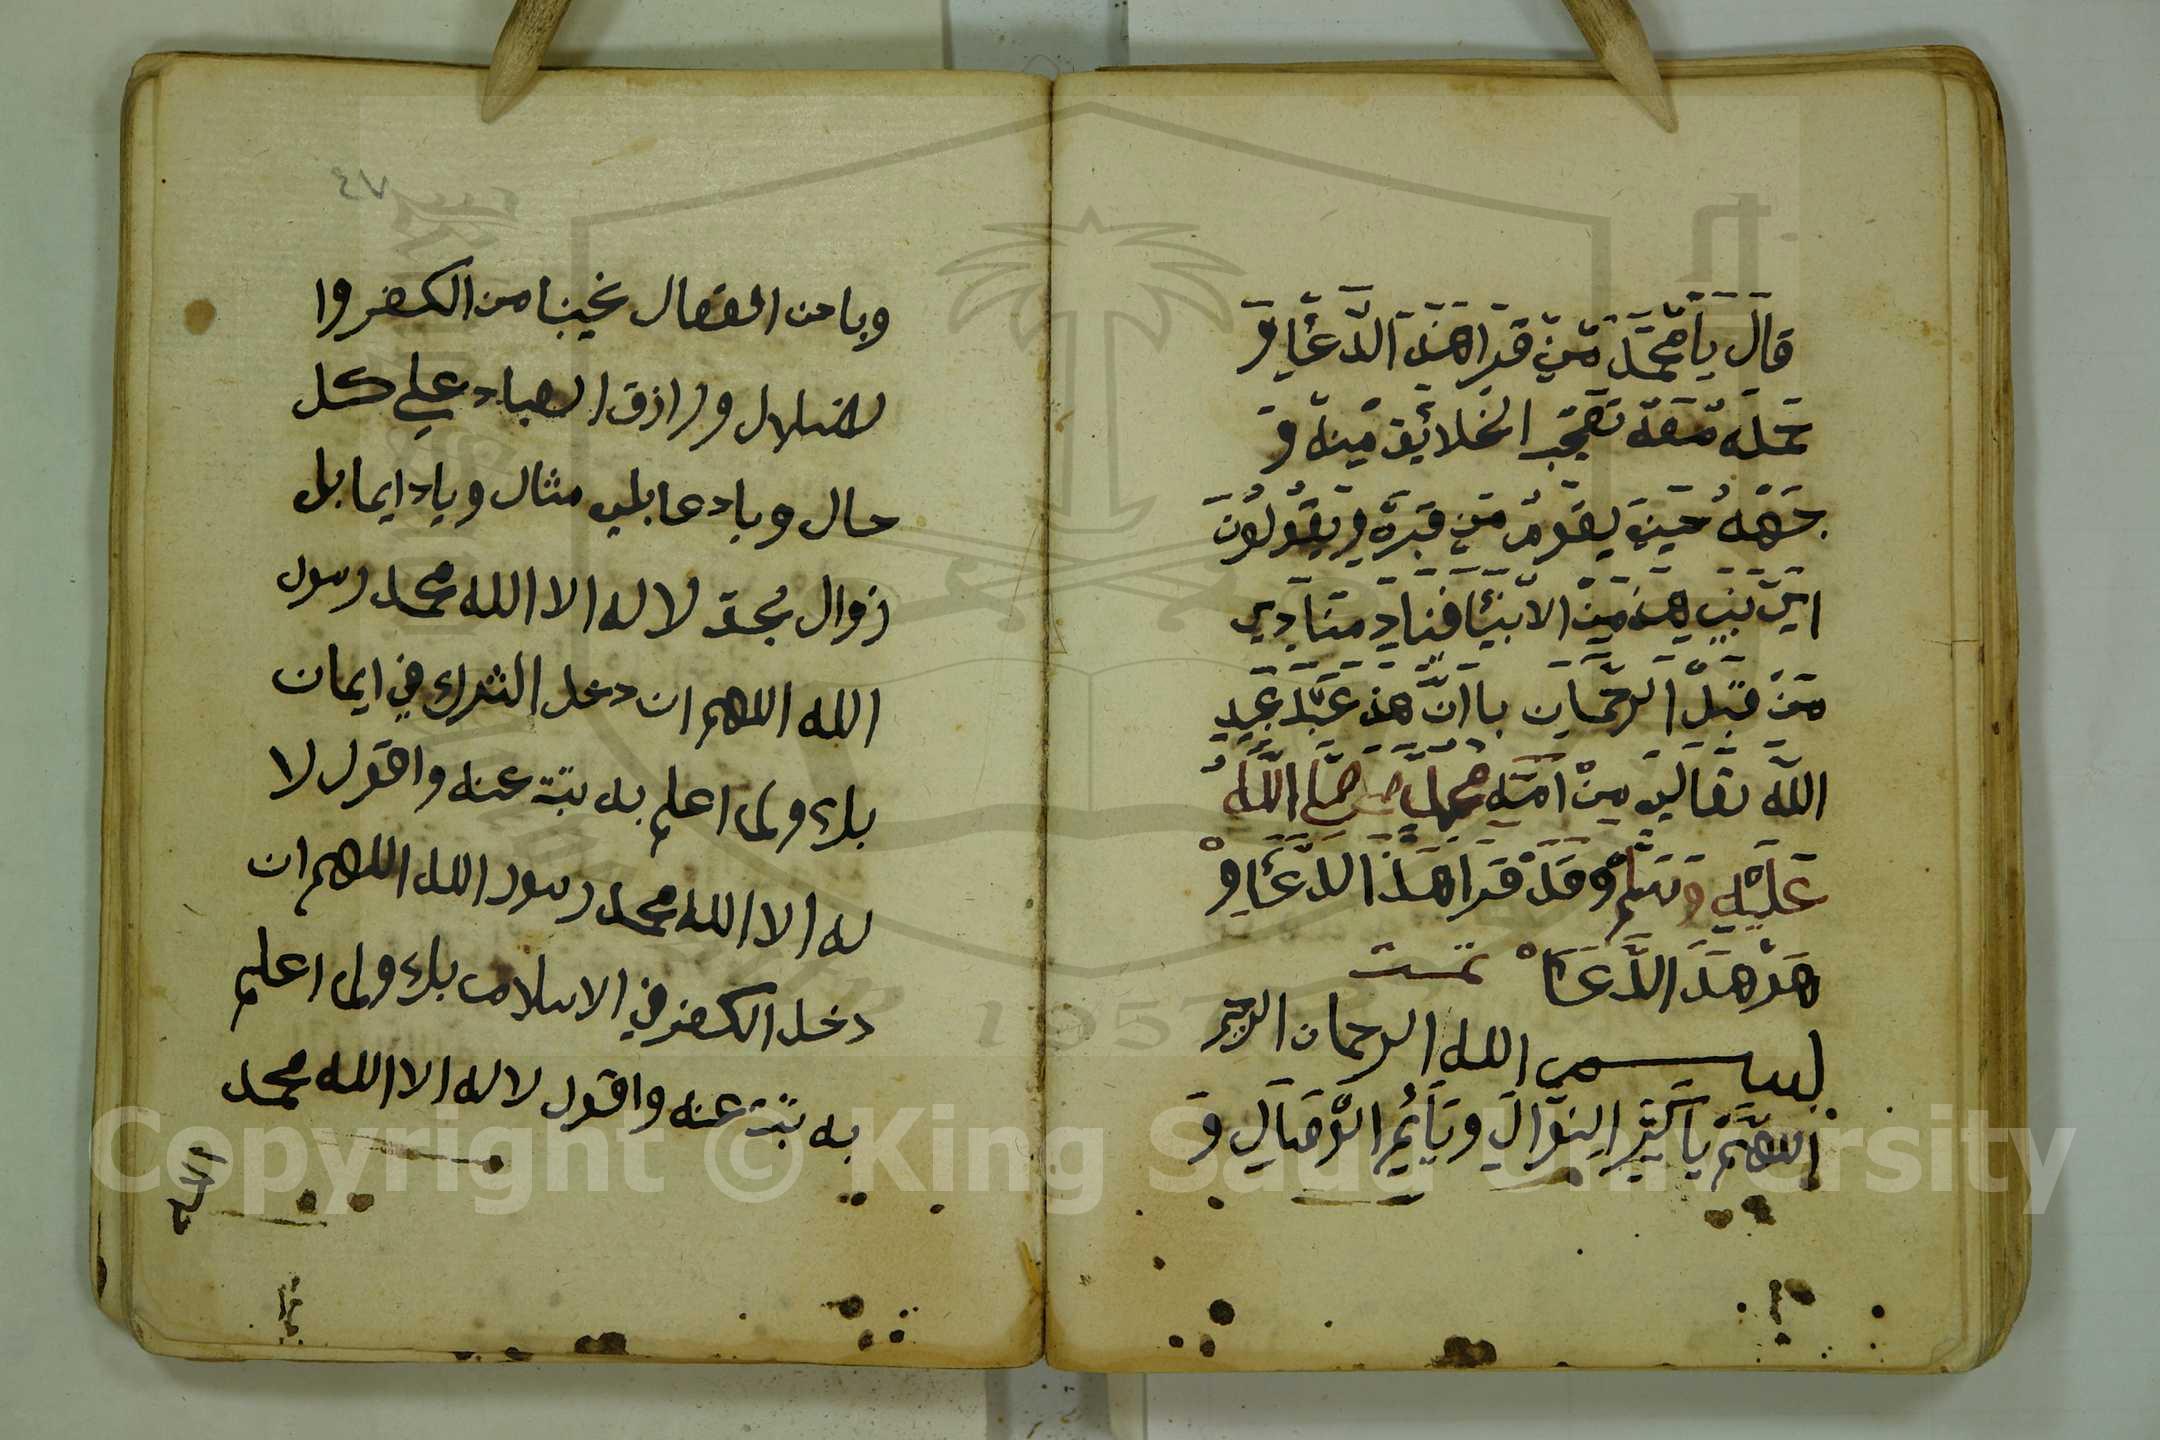 قَالَ يَا مُحَمَّدَ مَنْ قَرَا هَذَ الدَّعَا وَ
حَمَلَه مَعَهَ تَعَجَّبَ الخَلَائِقَ مِنهَ وَ
جَهْهُ حَينَ يَقَومُ مَن قَبَرهَ وَ يَقُولُونَ
ايَ نَبَيٍ هَذ مَنْ الاَنبَيَا فَينَادِ مَنَادِي
مَنْ قَبَلْ الرَحْمَان با انَّ هَذ عَبَدَ عَبِيدِ
اللَه تَعَالَى مِنْ امَتِه مُحمد صَلَّ اللَّهُ
عَلَيْهِ وَسَلم وَقَدْ قَرَا هَذَا الدَّعَا وْ
هَذ هَذَ الدَّعَا تمت
بسم الله الرحمان الرحيم
اللهَمَّ يَا كَثِيرَ النَوَالِ وَيَا دَايُمِ الوَصَالِ وَ
٧٤
ويا حسن الفعال نجينا من الكفر وا
لضلال ورازق العباد علي كل
حال ويا دعا بلي مثال ويا دايما بل
زوال بحق لا له الا الله محمد رسول
الله اللهم ان دخل الشرك في ايمان
بك ولم اعلم به تبت عنه واقول لا
له الا الله محمد رسول الله اللهم ان
دخل الكفر في الاسلام بك ولم اعلم
به تبت عنه واقول لا له الا الله محمد
Copyright © King Saud University
1957